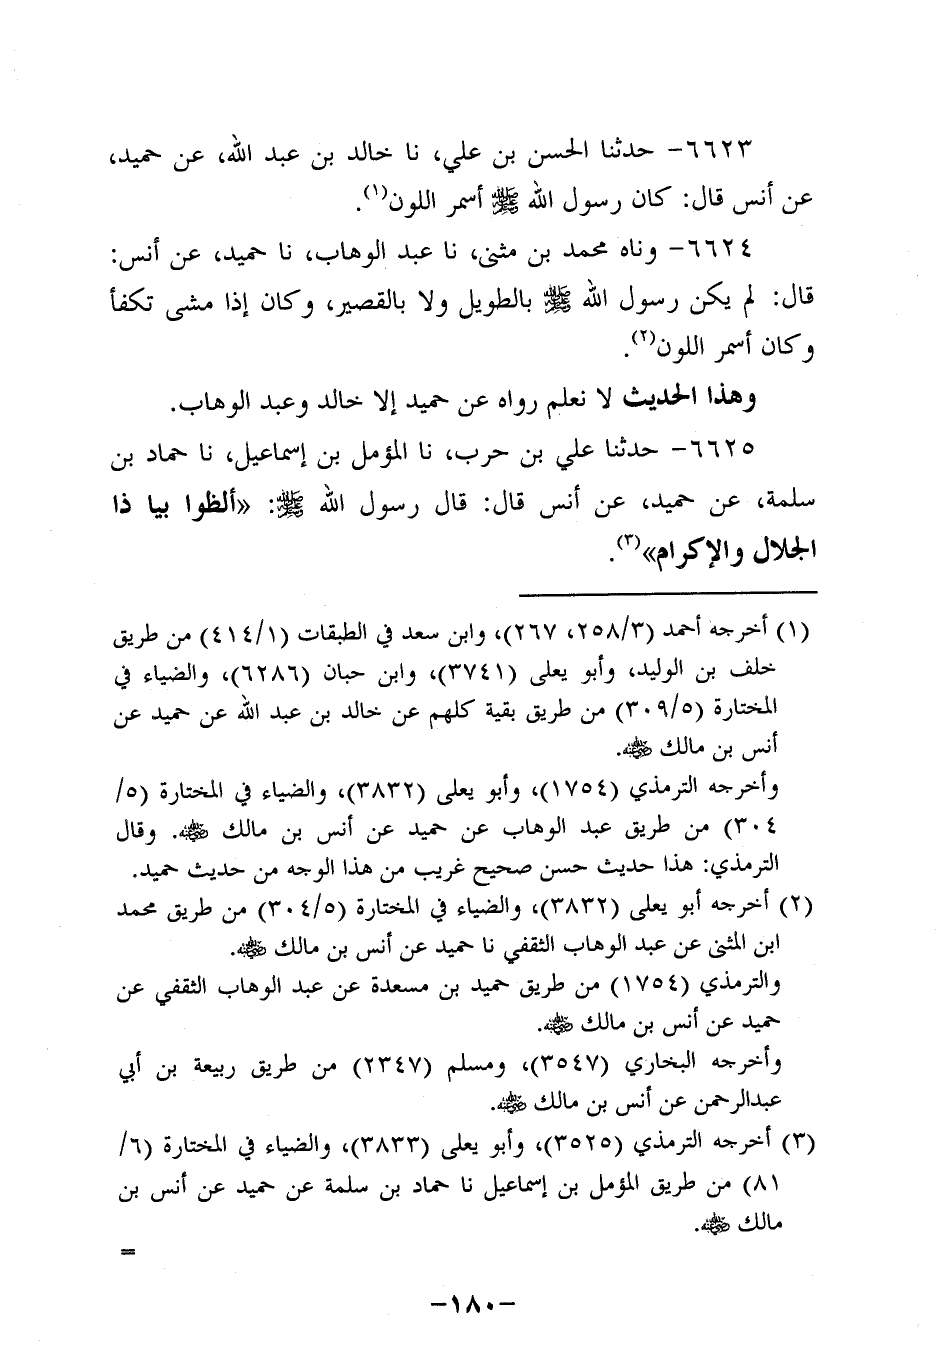 ٦٦٢٣- حدثنا الحسن بن علي، نا خالد بن عبد الله، عن حميد،
عن أنس قال: كان رسول الله ﷺ أسمر اللون(١).
٦٦٢٤- وناه محمد بن مثنى، نا عبد الوهاب، نا حميد، عن أنس:
قال: لم يكن رسول الله ﷺ بالطويل ولا بالقصير، وكان إذا مشى تكفأ
وكان أسمر اللون(٢).
وهذا الحديث لا نعلم رواه عن حميد إلا خالد وعبد الوهاب.
٦٦٢٥- حدثنا علي بن حرب، نا المؤمل بن إسماعيل، نا حماد بن
سلمة، عن حميد، عن أنس قال: قال رسول الله ﷺ: «ألظوا بيا ذا
الجلال والإكرام»(٣).
(١) أخرجه أحمد (٢٥٨/٣، ٢٦٧)، وابن سعد في الطبقات (٤١٤/١) من طريق
خلف بن الوليد، وأبو يعلى (٣٧٤١)، وابن حبان (٦٢٨٦)، والضياء في
المختارة (٣٠٩/٥) من طريق بقية كلهم عن خالد بن عبد الله عن حميد عن
أنس بن مالك رضي الله عنه.
وأخرجه الترمذي (١٧٥٤)، وأبو يعلى (٣٨٣٢)، والضياء في المختارة (٥/
٣٠٤) من طريق عبد الوهاب عن حميد عن أنس بن مالك رضي الله عنه. وقال
الترمذي: هذا حديث حسن صحيح غريب من هذا الوجه من حديث حميد.
(٢) أخرجه أبو يعلى (٣٨٣٢)، والضياء في المختارة (٣٠٤/٥) من طريق محمد
ابن المثنى عن عبد الوهاب الثقفي نا حميد عن أنس بن مالك رضي الله عنه.
والترمذي (١٧٥٤) من طريق حميد بن مسعدة عن عبد الوهاب الثقفي عن
حميد عن أنس بن مالك رضي الله عنه.
وأخرجه البخاري (٣٥٤٧)، ومسلم (٢٣٤٧) من طريق ربيعة بن أبي
عبدالرحمن عن أنس بن مالك رضي الله عنه.
(٣) أخرجه الترمذي (٣٥٢٥)، وأبو يعلى (٣٨٣٣)، والضياء في المختارة (٦/
٨١) من طريق المؤمل بن إسماعيل نا حماد بن سلمة عن حميد عن أنس بن
مالك رضي الله عنه.
=
-١٨٠-